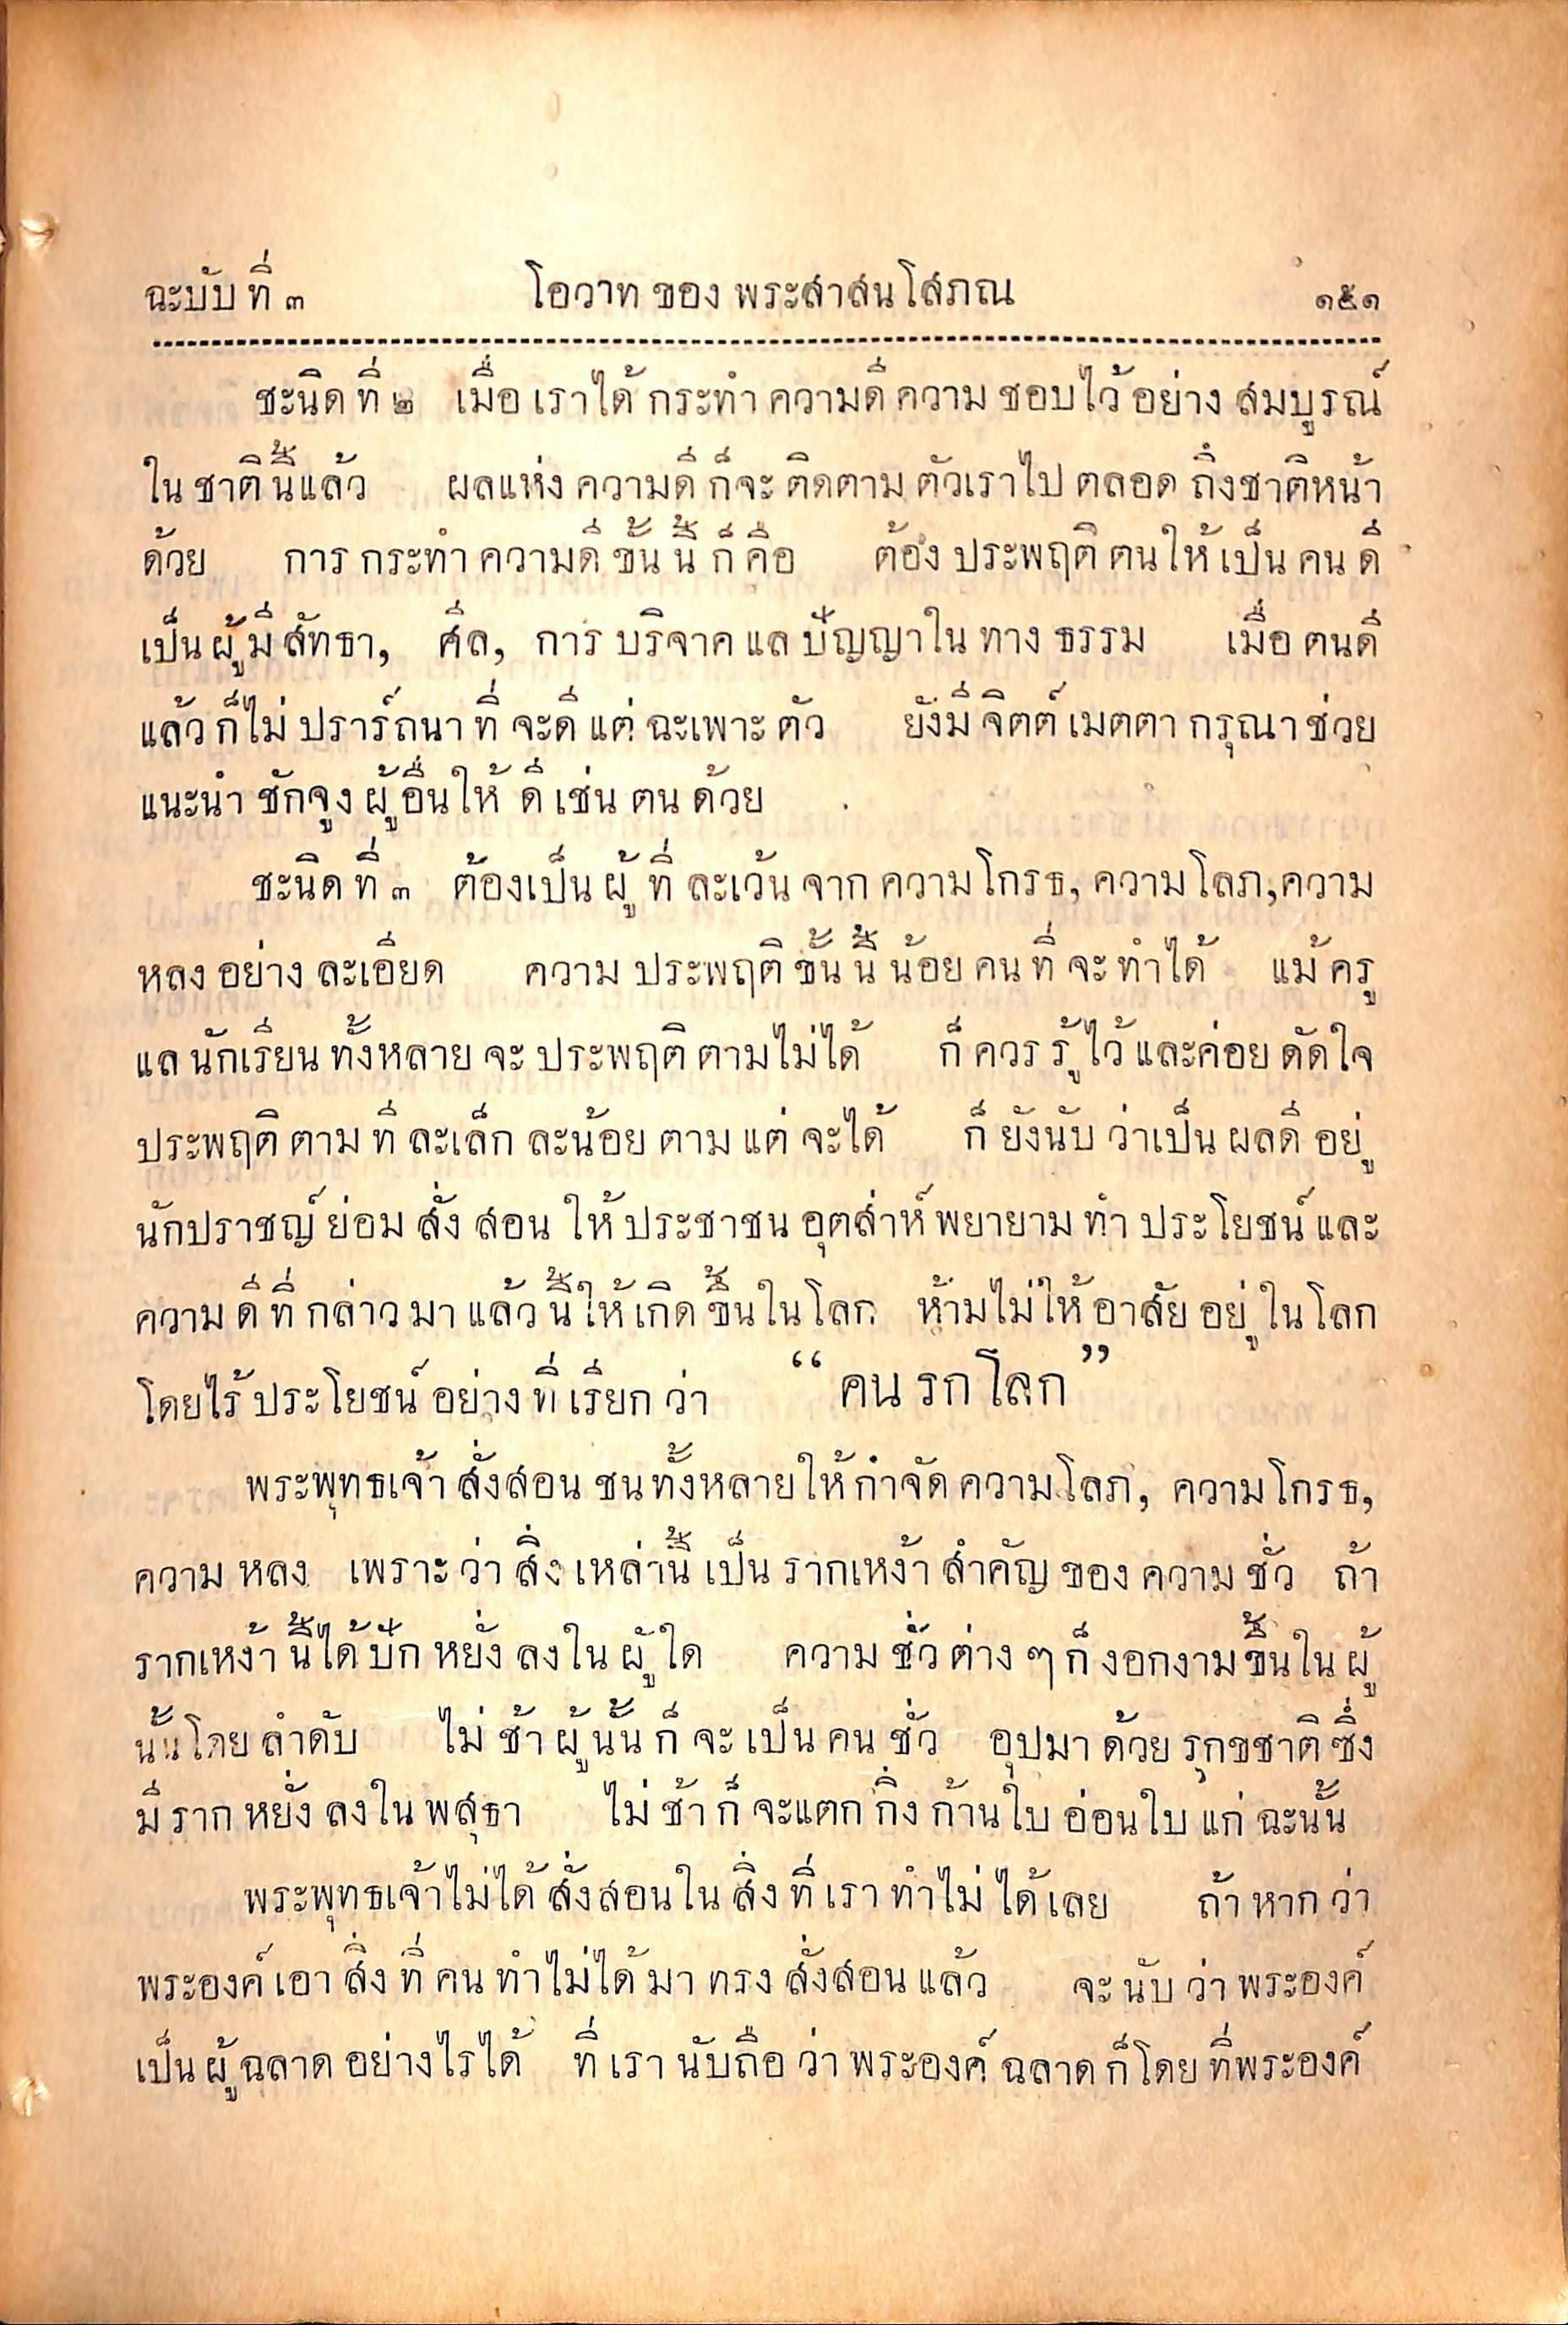 ฉะบับ ที่ ๓ โอวาท ของ พระสาสนโสภณ ๑๕๑
ชะนิด ที่ ๒ เมื่อ เราได้ กระทำ ความดี ความ ชอบไว้ อย่าง สมบูรณ์
ใน ชาตินี้แล้ว ผลแห่ง ความดี ก็จะ ติดตาม ตัวเราไป ตลอด ถึงชาติหน้า
ด้วย การ กระทำ ความดี ขั้น นี้ ก็ คือ ต้อง ประพฤติ ตนให้ เป็น คน ดี
เป็น ผู้ มี สัทธา, ศีล, การ บริจาค แล ปัญญาใน ทาง ธรรม เมื่อ ตนดี
แล้ว ก็ไม่ ปรารถนา ที่ จะดี แต่ ฉะเพาะ ตัว ยังมี จิตต์ เมตตา กรุณา ช่วย
แนะนำ ชักจูง ผู้ อื่นให้ ดี เช่น ตน ด้วย
ชะนิด ที่ ๓ ต้องเป็น ผู้ ที่ ละเว้น จาก ความโกรธ, ความโลภ, ความ
หลง อย่าง ละเอียด ความ ประพฤติ ขั้น นี้ น้อย คน ที่ จะ ทำได้ แม้ ครู
แล นักเรียน ทั้งหลาย จะ ประพฤติ ตามไม่ได้ ก็ ควร รู้ ไว้ และค่อย ดัดใจ
ประพฤติ ตาม ที ละเล็ก ละน้อย ตาม แต่ จะได้ ก็ ยังนับ ว่าเป็น ผลดี อยู่
นักปราชญ์ ย่อม สั่ง สอน ให้ ประชาชน อุตส่าห์ พยายาม ทำ ประโยชน์ และ
ความ ดี ที่ กล่าว มา แล้ว นี้ ให้ เกิด ขึ้นในโลก ห้ามไม่ให้ อาศัย อยู่ ในโลก
โดยไร้ ประโยชน์ อย่าง ที่ เรียก ว่า “ คน รกโลก ”
พระพุทธเจ้า สั่งสอน ชนทั้งหลายให้กำจัด ความโลภ, ความโกรธ,
ความ หลง เพราะ ว่า สิ่ง เหล่านี้ เป็น รากเหง้า สำคัญ ของ ความ ชั่ว ถ้า
รากเหง้า นี้ได้ ปัก หยั่ง ลงใน ผู้ ใด ความ ชั่ว ต่าง ๆ ก็ งอกงาม ขึ้นใน ผู้
นั้นโดย ลำดับ ไม่ ช้า ผู้ นั้น ก็ จะ เป็น คน ชั่ว อุปมา ด้วย รุกขชาติ ซึ่ง
มี ราก หยั่ง ลงใน พสุธา ไม่ ช้า ก็ จะแตก กิ่ง ก้านใบ อ่อนใบ แก่ ฉะนั้น
พระพุทธเจ้าไม่ได้ สั่งสอนใน สิ่ง ที่ เรา ทำไม่ ได้ เลย ถ้า หาก ว่า
พระองค์ เอา สิ่ง ที่ คน ทำไม่ได้ มา ทรง สั่งสอน แล้ว จะ นับ ว่า พระองค์
เป็น ผู้ ฉลาด อย่างไรได้ ที่ เรา นับถือ ว่า พระองค์ ฉลาด ก็โดย ที่พระองค์